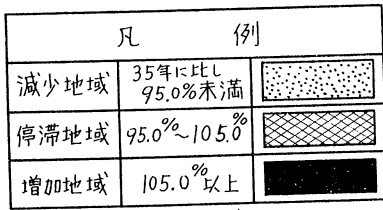 凡例
減少地域 35年に比し
95.0%未満
停滞地域 95.0%~105.0%
増加地域 105.0%以上